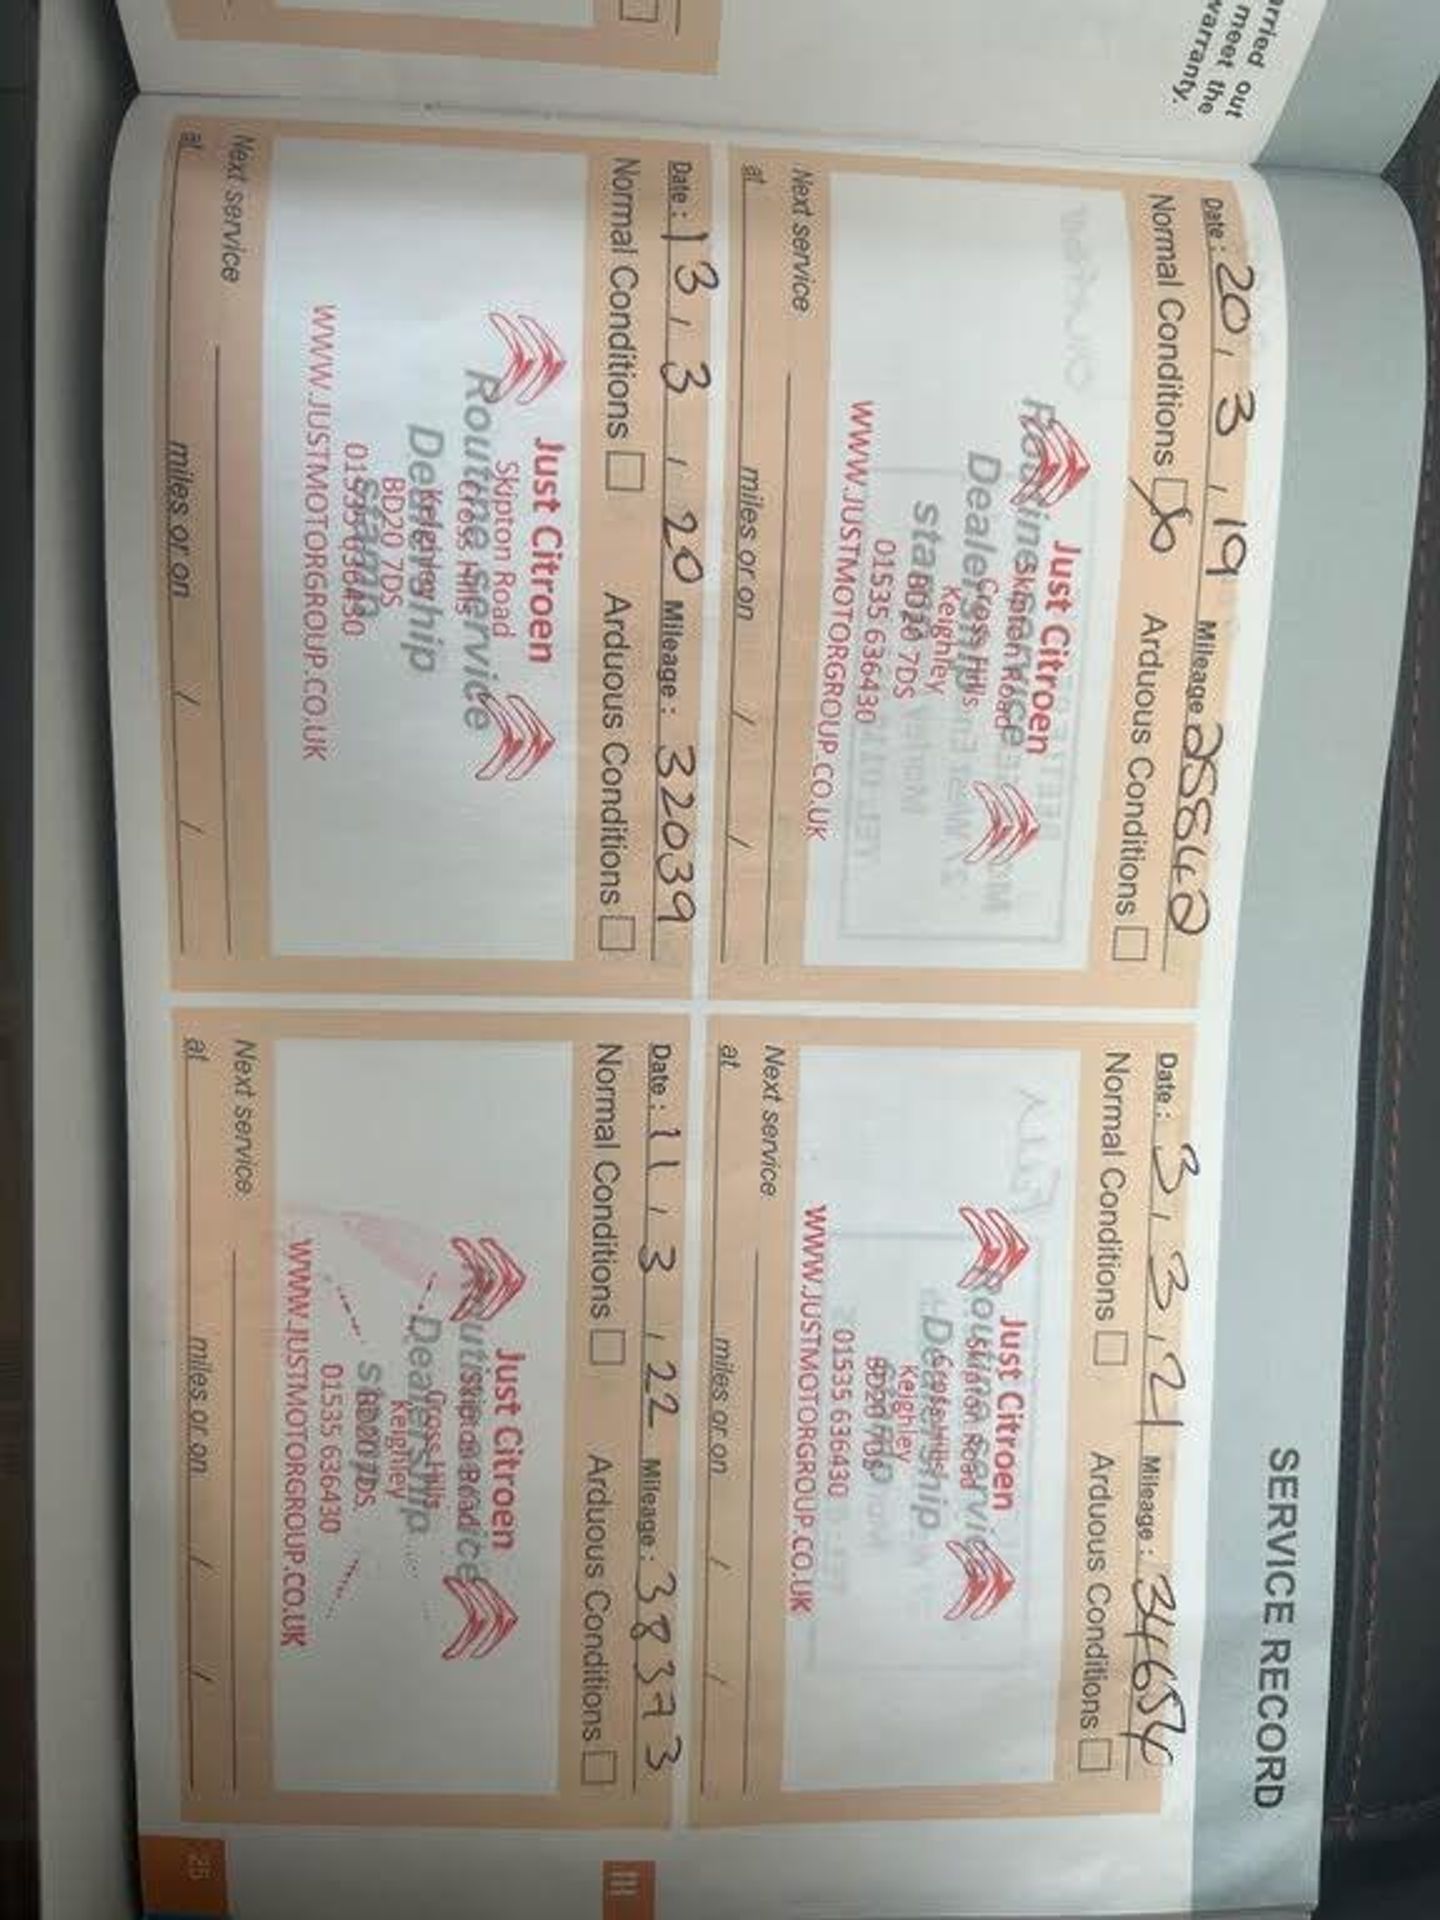 arried out
meet the
warranty.
SERVICE RECORD
Date : 20 / 3 / 19 Mileage 25840
Normal Conditions Arduous Conditions
Routine service
Dealership
stamp
Just Citroen
Skipton Road
Cross Hills
Keighley
BD20 7DS
01535 636430
WWW.JUSTMOTORGROUP.CO.UK
Next service
at miles or on / /
Date : 3 / 3 / 21 Mileage : 34654
Normal Conditions Arduous Conditions
Routine service
Dealership
Just Citroen
Skipton Road
Cross Hills
Keighley
BD20 7DS
01535 636430
WWW.JUSTMOTORGROUP.CO.UK
Next service
at miles or on / /
Date : 13 / 3 / 20 Mileage : 32039
Normal Conditions Arduous Conditions
Routine service
Dealership
stamp
Just Citroen
Skipton Road
Cross Hills
Keighley
BD20 7DS
01535 636430
WWW.JUSTMOTORGROUP.CO.UK
Next service
at miles or on / /
Date : 11 / 3 / 22 Mileage : 38373
Normal Conditions Arduous Conditions
Routine service
Dealership
stamp
Just Citroen
Skipton Road
Cross Hills
Keighley
BD20 7DS
01535 636430
WWW.JUSTMOTORGROUP.CO.UK
Next service
at miles or on / /
III
25